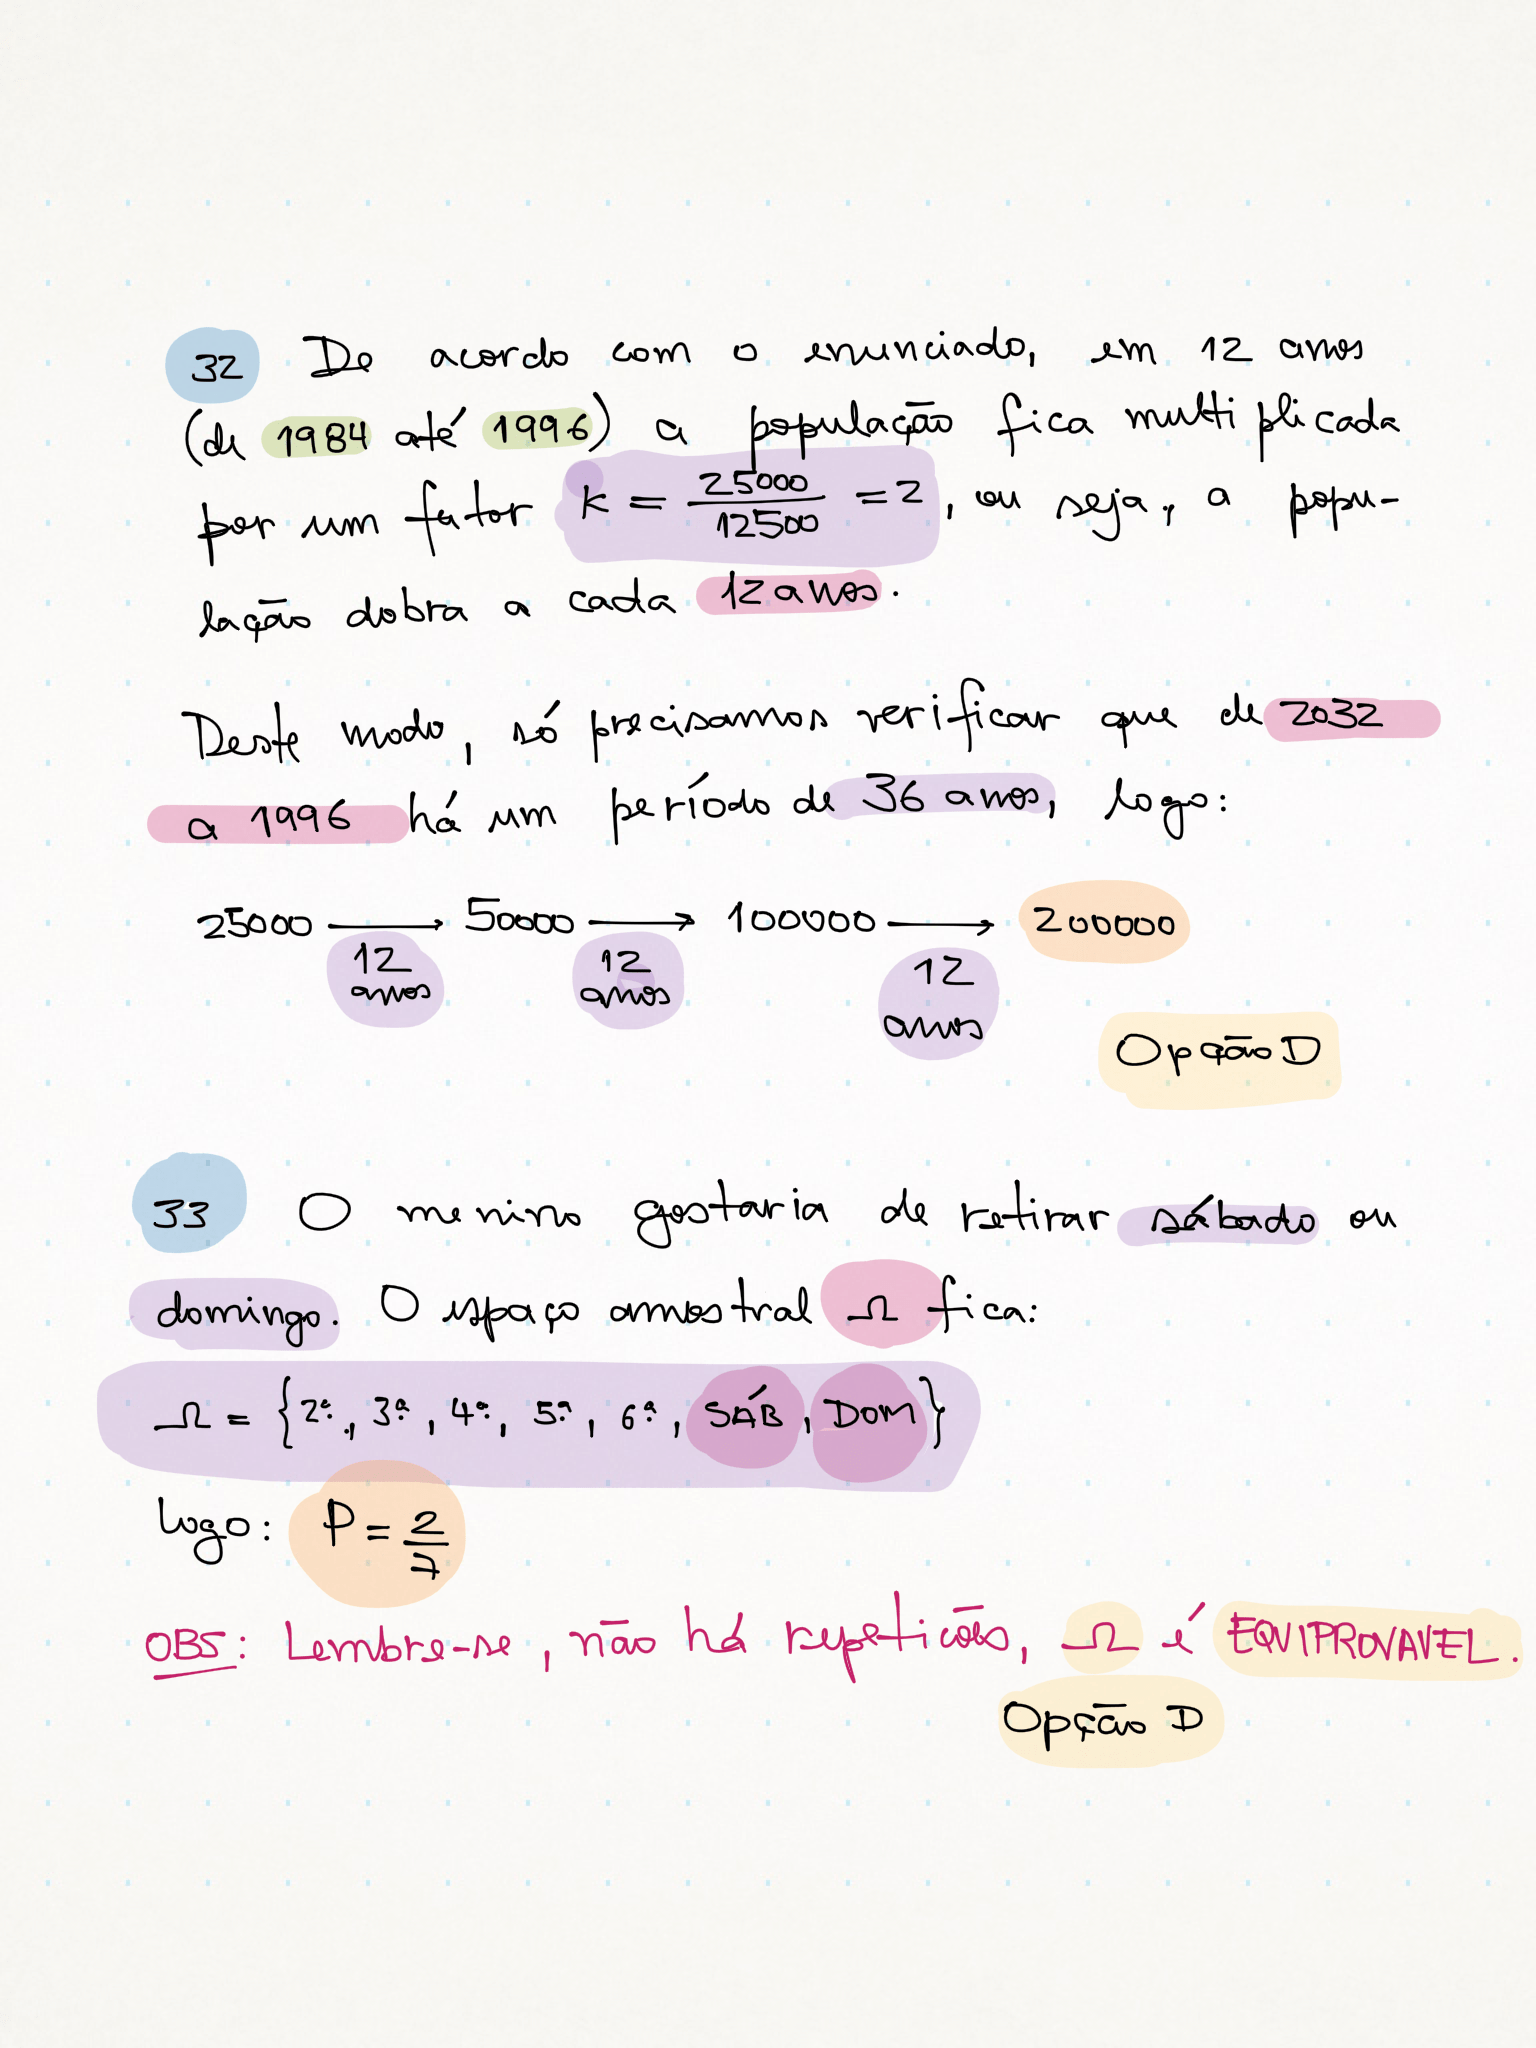 32 De acordo com o enunciado, em 12 anos
(de 1984 até 1996) a população fica multiplicada
por um fator k = 25000/12500 = 2, ou seja, a popu-
lação dobra a cada 12 anos.
Deste modo, só precisamos verificar que de 2032
a 1996 há um período de 36 anos, logo:
25000 → 50000 → 100000 → 200000
12 anos 12 anos 12 anos
Opção D
33 O menino gostaria de retirar sábado ou
domingo. O espaço amostral Ω fica:
Ω = {2ª, 3ª, 4ª, 5ª, 6ª, SÁB, DOM}
logo: P = 2/7
OBS: Lembre-se, não há repetições, Ω é EQUIPROVAVEL.
Opção D